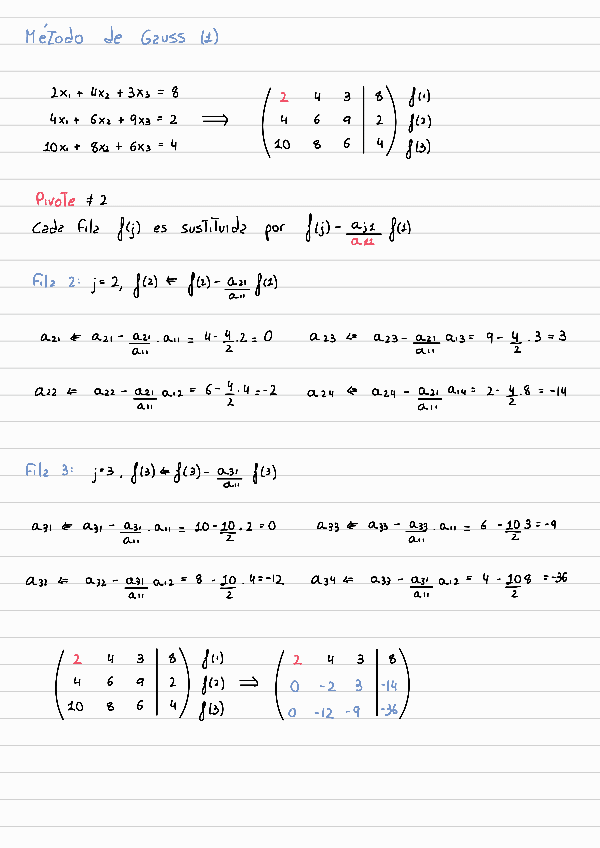 Método de Gauss (1)
2x₁ + 4x₂ + 3x₃ = 8
4x₁ + 6x₂ + 9x₃ = 2
10x₁ + 8x₂ + 6x₃ = 4
⟹
2 4 3 | 8 f(1)
4 6 9 | 2 f(2)
10 8 6 | 4 f(3)
Pivote ≠ 2
Cada fila f(j) es sustituida por f(j) - aj1/a11 f(1)
Fila 2: j = 2, f(2) ⇐ f(2) - a21/a11 f(1)
a21 ⇐ a21 - a21/a11 · a11 = 4 - 4/2 · 2 = 0 a23 ⇐ a23 - a21/a11 a13 = 9 - 4/2 · 3 = 3
a22 ⇐ a22 - a21/a11 a12 = 6 - 4/2 · 4 = -2 a24 ⇐ a24 - a21/a11 a14 = 2 - 4/2 · 8 = -14
Fila 3: j = 3, f(3) ⇐ f(3) - a31/a11 f(3)
a31 ⇐ a31 - a31/a11 · a11 = 10 - 10/2 · 2 = 0 a33 ⇐ a33 - a33/a11 · a11 = 6 - 10/2 3 = -9
a32 ⇐ a32 - a31/a11 a12 = 8 - 10/2 · 4 = -12 a34 ⇐ a33 - a31/a11 a12 = 4 - 10/2 8 = -36
2 4 3 | 8 f(1)
4 6 9 | 2 f(2)
10 8 6 | 4 f(3)
⟹
2 4 3 | 8
0 -2 3 | -14
0 -12 -9 | -36